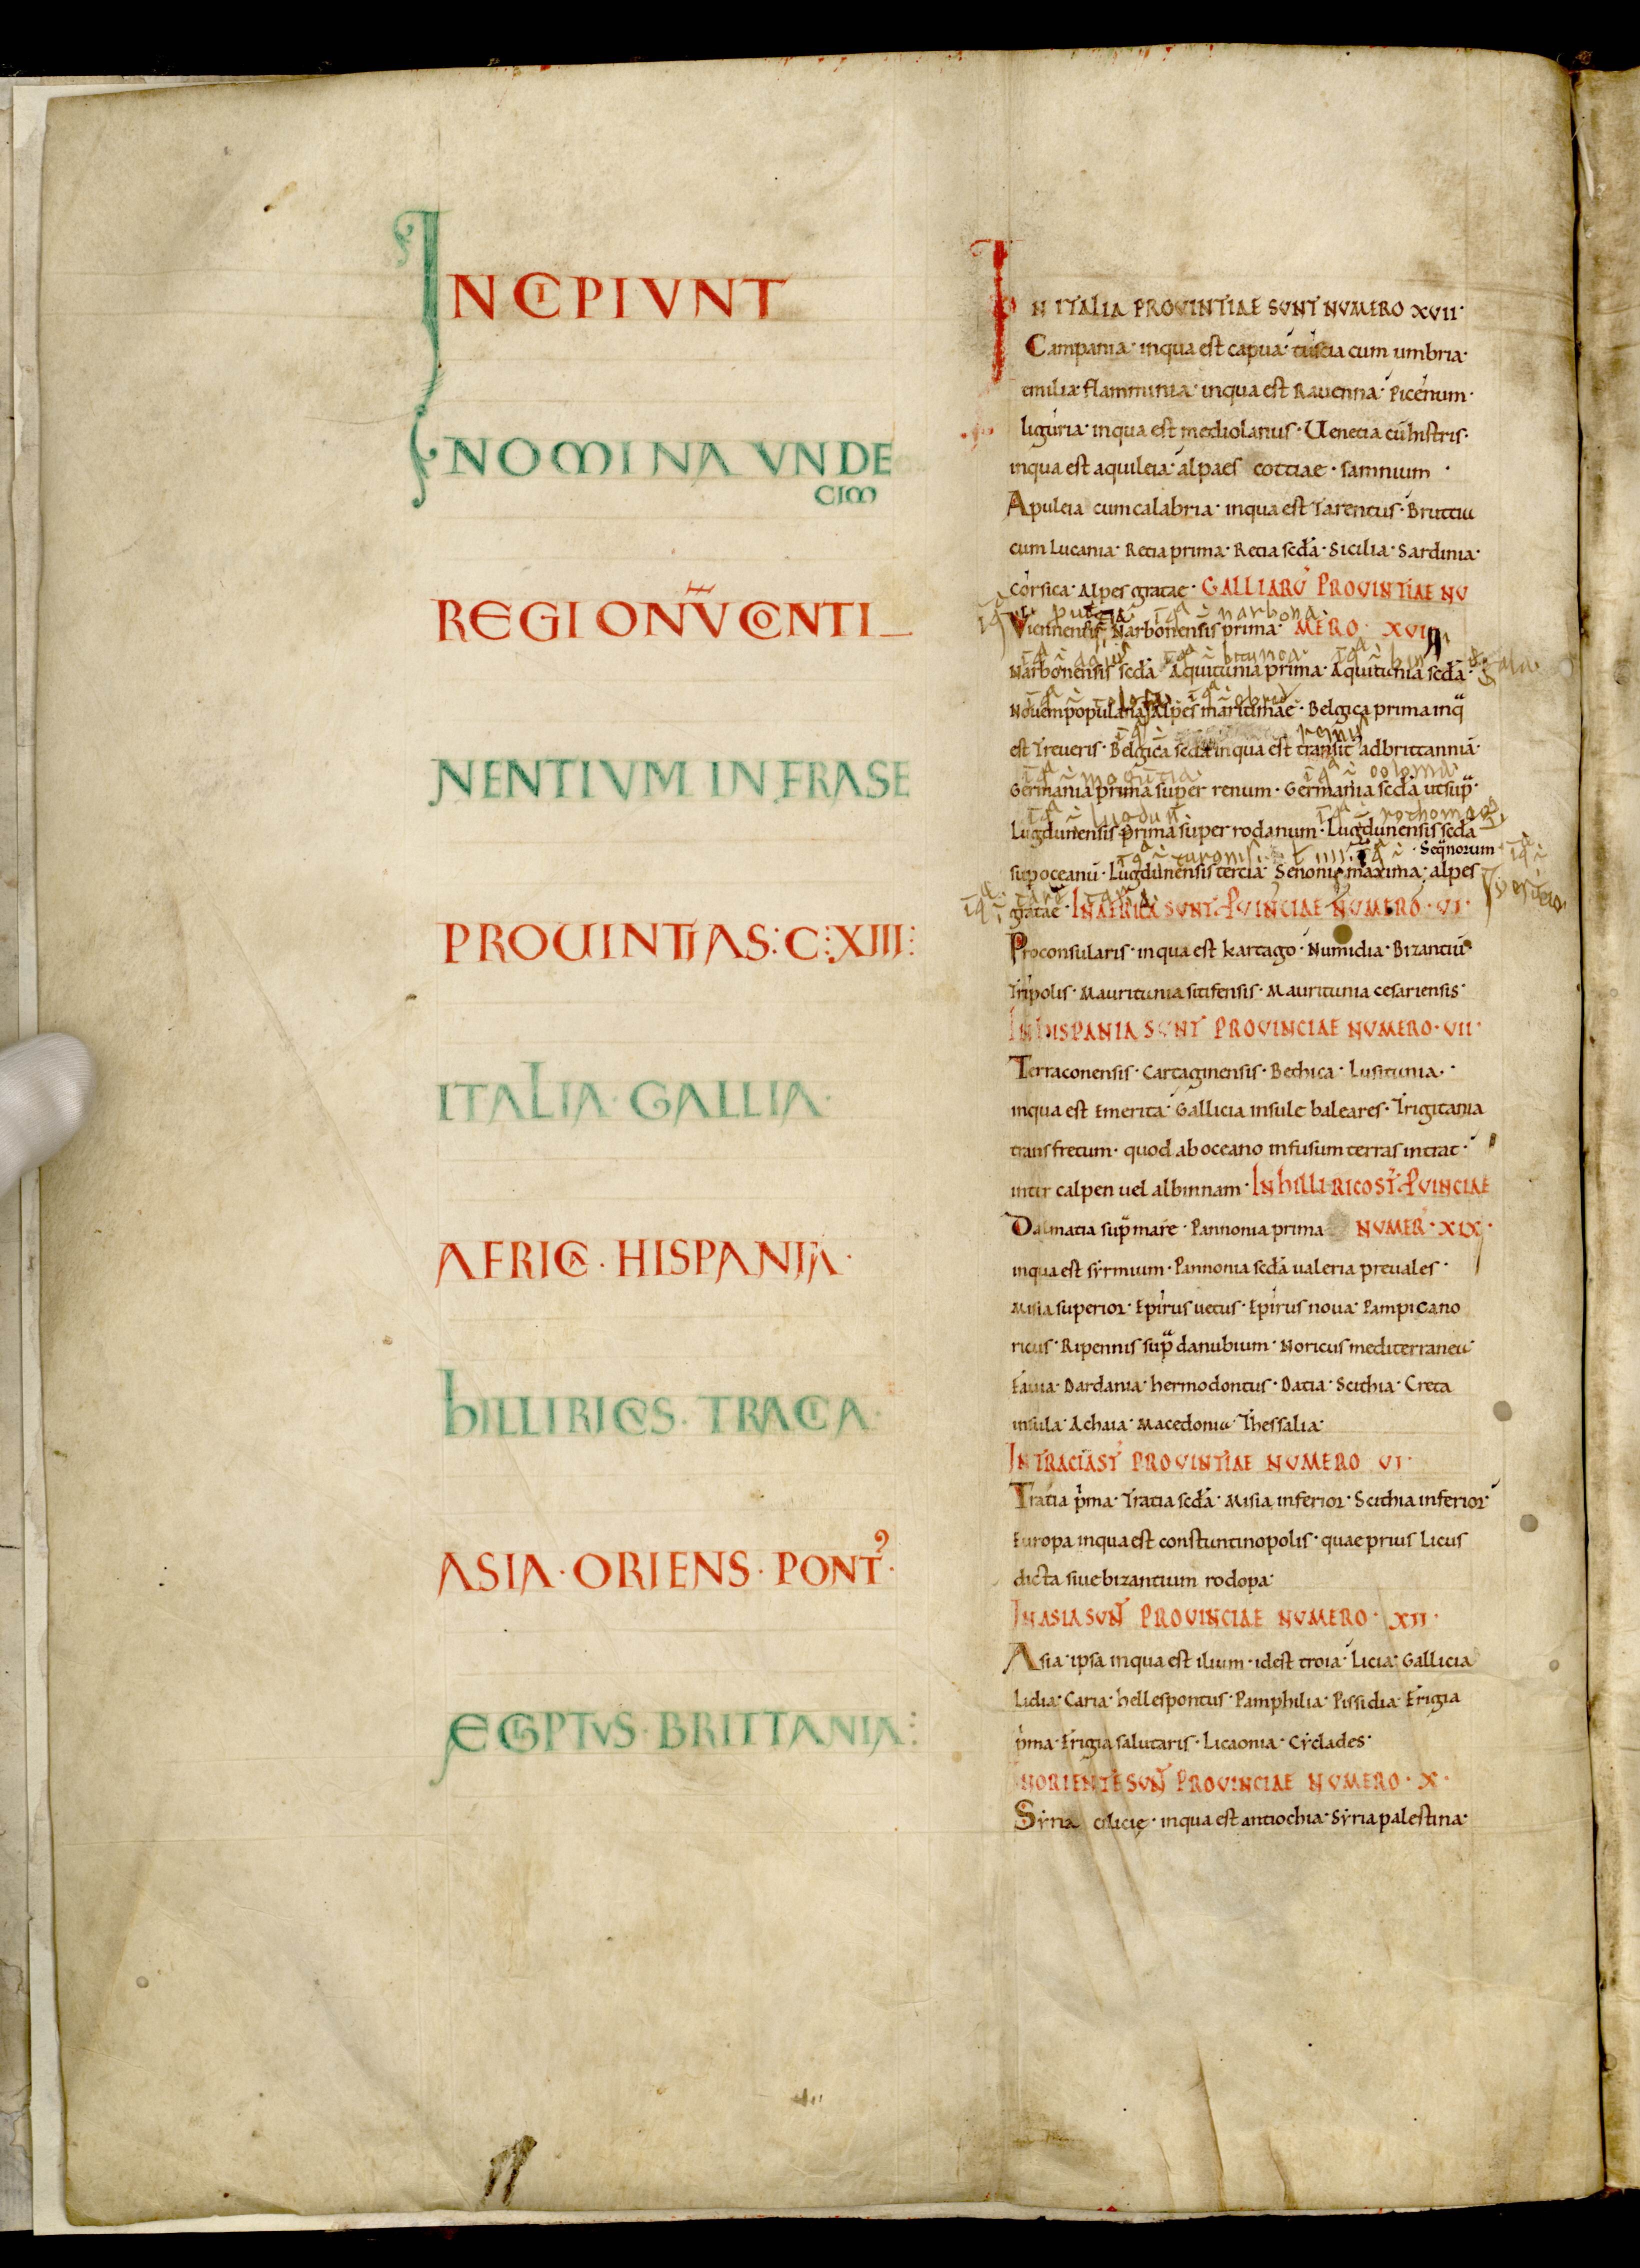 INCIPIUNT
NOMINA VNDE
CIM
REGIONŪ CONTI
NENTIVM INFRA SE
PROUINTIAS: C: XIII:
ITALIA· GALLIA·
AFRICA· HISPANIA·
hILLIRICVS· TRACIA·
ASIA· ORIENS· PONTꝰ·
EGIPTVS· BRITTANIA:
IN ITALIA PROUINTIAE SUNT NUMERO XVII·
Campania· inqua est capua· tuscia cum umbria·
emilia flamminia· inqua est Rauenna· Picenum·
liguria· inqua est mediolanus· Uenetia cū histris·
inqua est aquileia· alpaes cottiae· samnium·
Apuleia cum calabria· inqua est Tarentus· Bruttiu
cum Lucania· Retia prima· Retia scdā· Sicilia· Sardinia·
Corsica· Alpes gratae· GALLIARŪ PROUINTIAE NU
Viennensis· Narbonensis prima· MERO· XVI
narbona
Narbonensis scdā· Aquitunia prima· Aquitunia scdā·
Nouempopulana· Alpes maritimae· Belgica prima inq̄
est Treueris· Belgica scdā inqua est transit adbrittanniā·
Germania prima super renum· Germania scdā ut sup̄·
Lugdunensis prima super rodanum· Lugdunensis scdā
Seq̄norum
sup oceanū· Lugdunensis tercia· Senonia maxima· alpes
gratae· IN AFRICA SUNT PUINCIAE NUMERO· VI·
Proconsularis· inqua est kartago· Numidia· Bizantiū·
Tripolis· Mauritunia sitifensis· Mauritunia cesariensis·
IN hISPANIA SUNT PROUINCIAE NUMERO· VII·
Terraconensis· Cartaginensis· Bethica· Lusitunia·
inqua est Emerita· Gallicia insule baleares· Trigitania
trans fretum· quod ab oceano infusum terras intrat·
intir calpen uel albinnam· IN hILLIRICO ST̄ PUINCIAE
Dalmatia sup̄ mare· Pannonia prima NUMER̄· XIX·
inqua est syrmium· Pannonia scdā ualeria preuales·
Misia superior· Epirus uetus· Epirus noua· Pampicano
ricus· Ripennis sup̄ danubium· Noricus mediterraneu·
Fauia· Dardania· hermodontus· Datia· Scithia· Creta
insula· Achaia· Macedoniu· Thessalia·
IN TRACIA ST̄ PROUINTIAE NUMERO VI·
Tratia p̄ma· Tratia scdā· Misia inferior· Scithia inferior·
Europa inqua est constuntinopolis· quae prius Licus
dicta siue bizantium rodopa·
IN ASIA SUN̄ PROUINCIAE NUMERO· XII·
Asia ipsa inqua est ilium· idest troia· Licia· Gallicia
Lidia· Caria· hellespontus· Pamphilia· Pissidia· Frigia
p̄ma· Frigia salutaris· Licaonia· Cyclades·
IN ORIENTE SUN̄ PROUINCIAE NUMERO· X·
Syria cilicię· inqua est antiochia· Syria palestina·